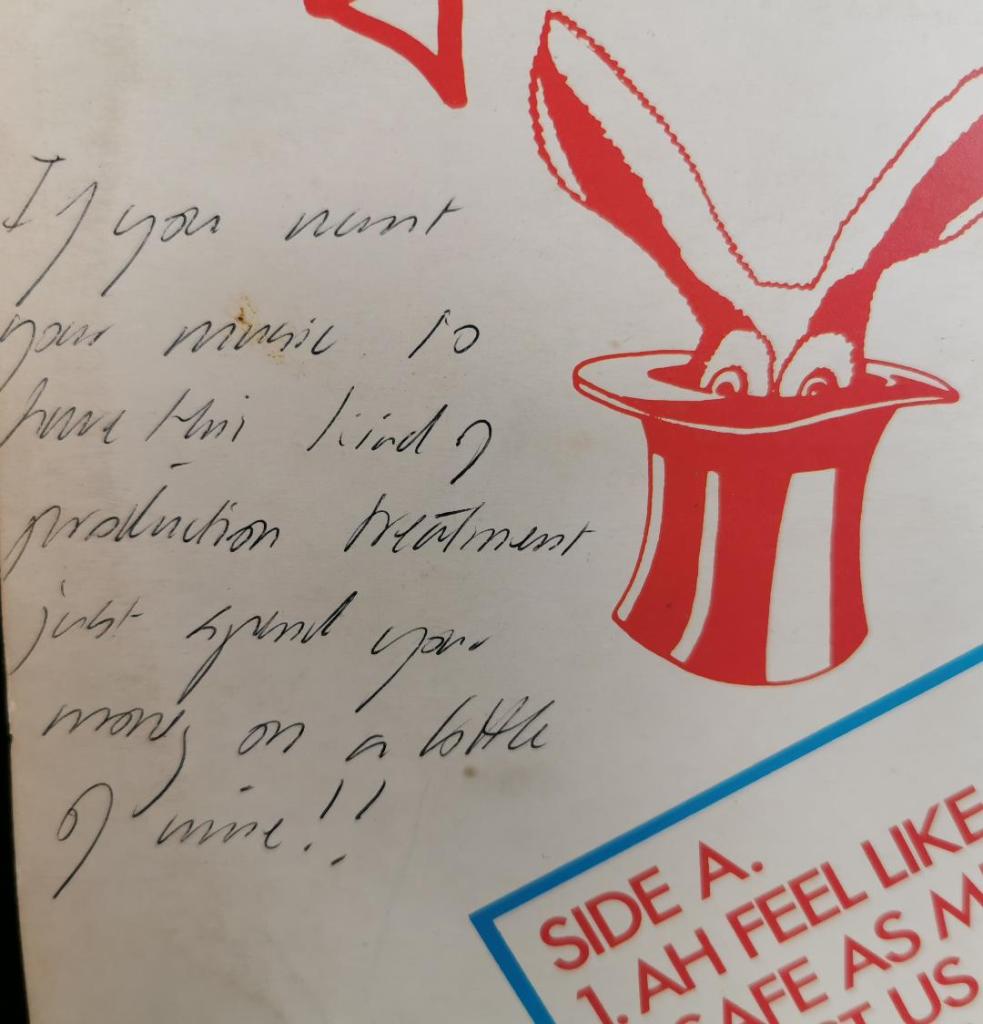 If you want
your music to
have this kind of
production treatment
just spend your
money on a bottle
of wine!!
SIDE A.
1. AH FEEL LIKE
SAFE AS M
US